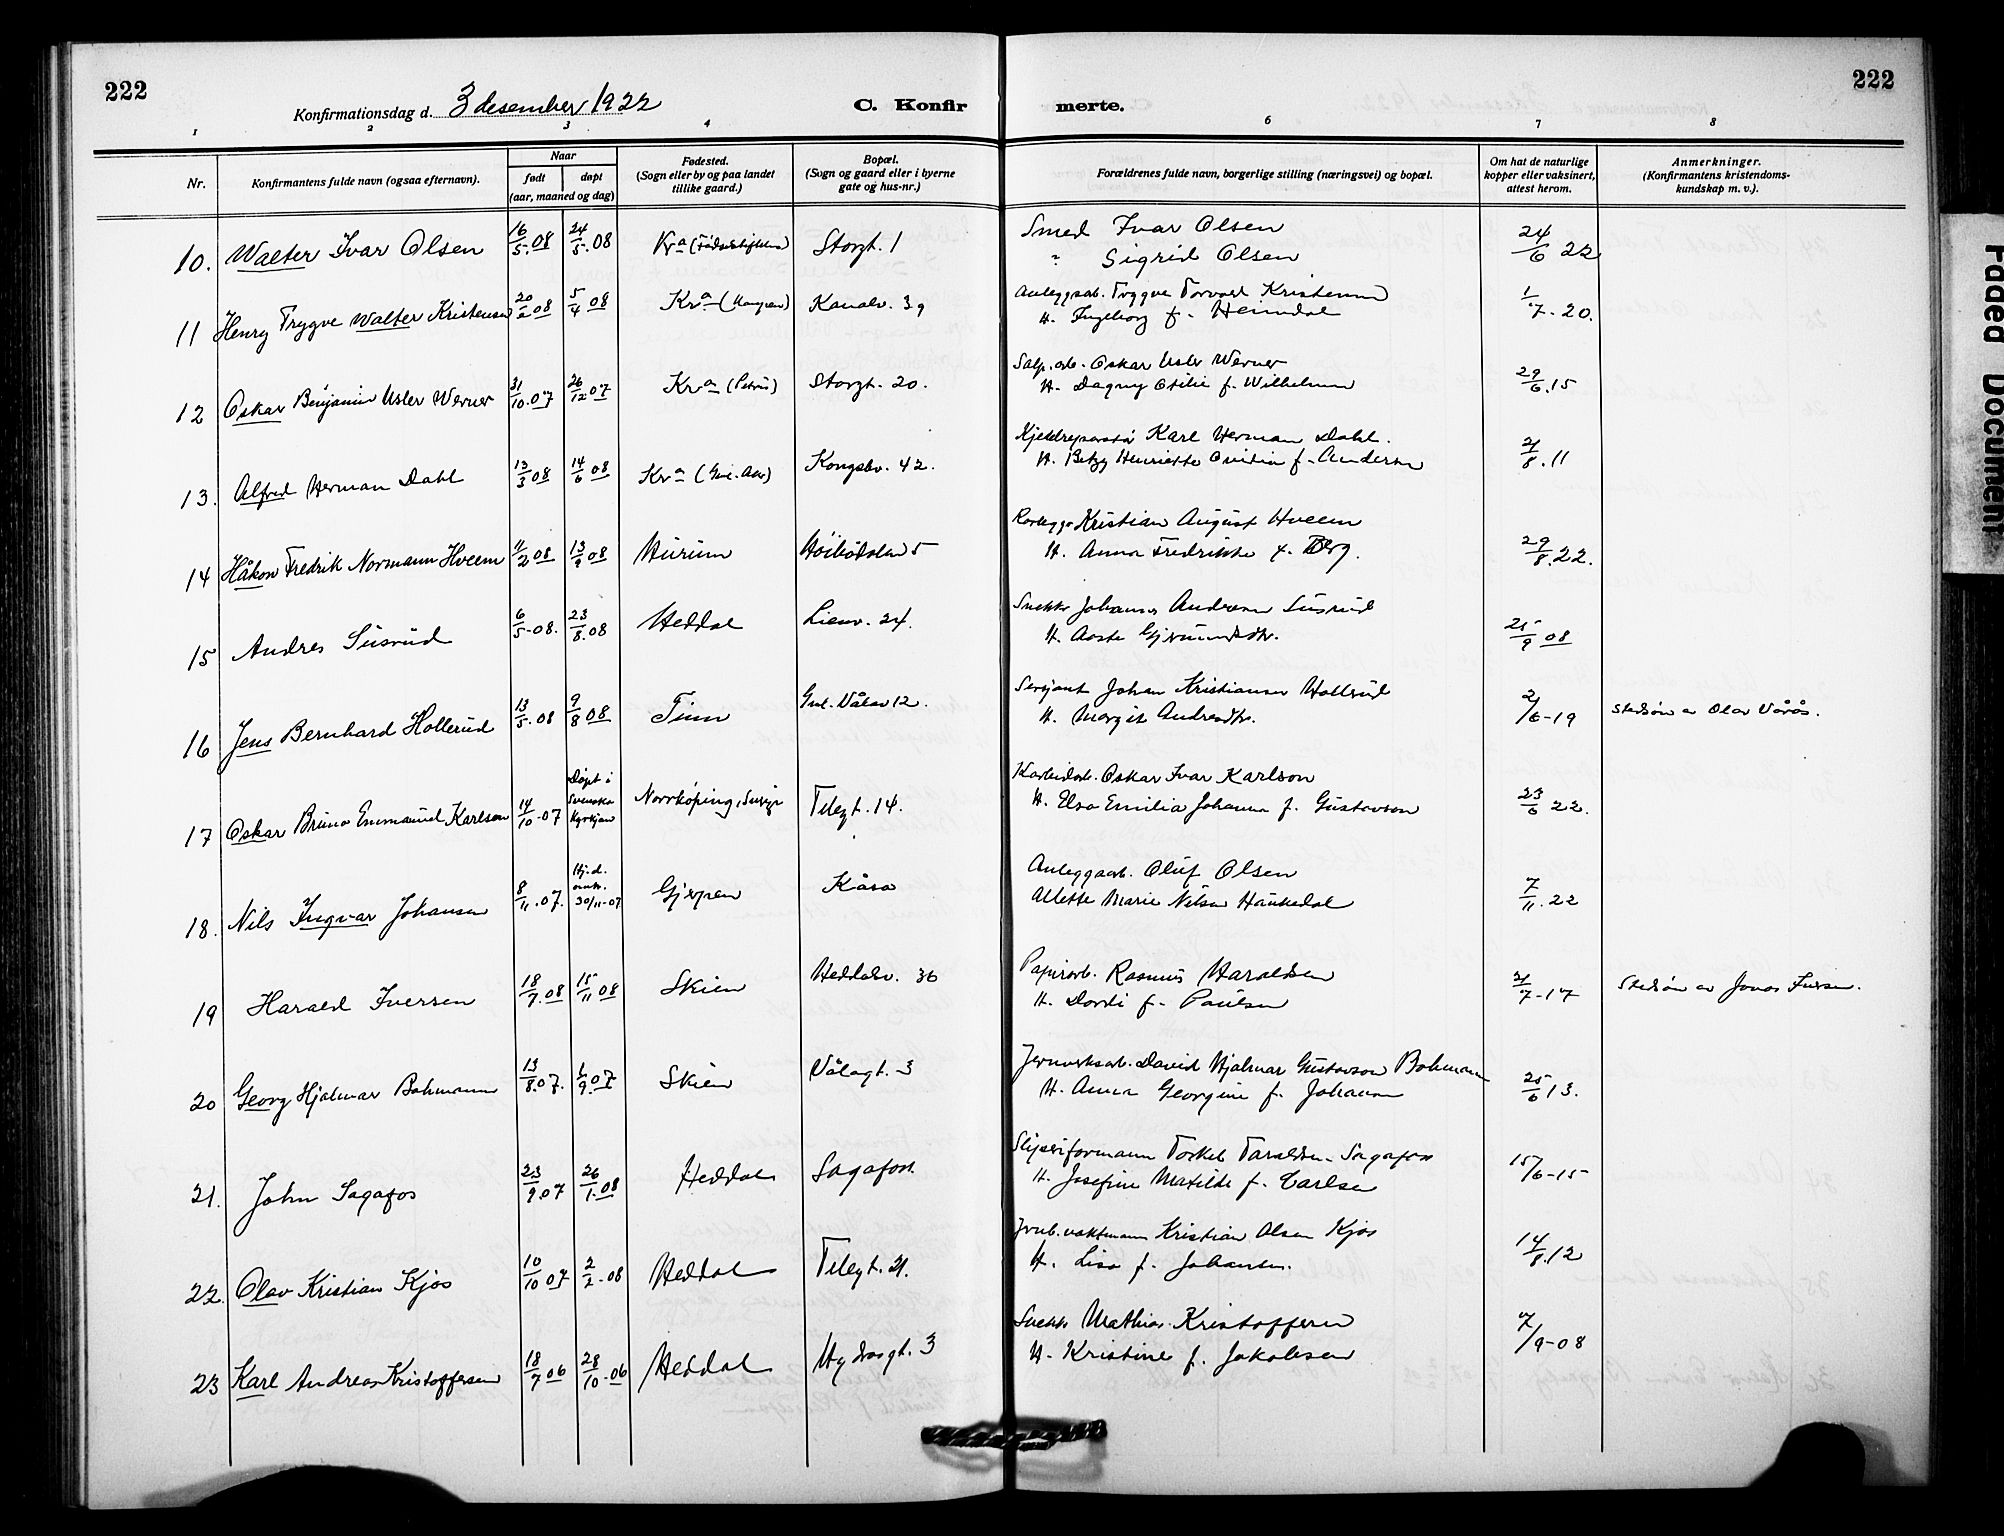 222
222
Konfirmationsdag d. 3 desember 1922
C. Konfir merte.
1 2 3 4 5 6 7 8
Nr.
Konfirmantens fulde navn (ogsaa efternavn).
Naar
født døpt
(aar, maaned og dag)
Fødested.
(Sogn eller by og paa landet
tillike gaard.)
Bopæl.
(Sogn og gaard eller i byerne
gate og hus-nr.)
Forældrenes fulde navn, borgerlige stilling (næringsvei) og bopæl.
Om hat de naturlige
kopper eller vaksinert,
attest herom.
Anmerkninger.
(Konfirmantens kristendoms-
kundskap m. v.).
10. Walter Ivar Olsen 16/5.08 24/5.08 Kra Storgt. 1 Smed Ivar Olsen 24/6 22
" Sigrid Olsen
11 Henry Trygve Walter Kristensen 20/2 08 5/4 08 Kra Kanalv. 39 Anleggsarb. Trygve Torvald Kristensen 1/7-20.
H. Ingeborg f. Heimdal
12 Oskar Benjamin Usler Werner 31/10.07 26/12 07 Kra (Petrus) Storgt. 20. Oskar Usler Werner 29/6.15
H. Dagny Otilie f. Wilhelmsen
13. Alfred Herman Dahl 13/3 08 14/6 08 Kra (Gml. Aker) Kongsbv. 42. Karl Herman Dahl. 2/8.11
H. Betzy Henriette f. Andersen
14 Håkon Fredrik Normann Hveem 11/2 08 13/9 08 Hurum 5 Kristian August Hveem 29/8.22.
H. Anna Fredrikke f. Berg.
15 Andres Susrud 6/5-08. 23/8.08 Heddal Lienv. 24. Snekker Johannes Andresen Susrud 25/9 08
H. Aaste
16 Jens Bernhard Hollerud 13/5-08 9/8 08 Tinn Gml. Dålav 12. Sersjant Johan Kristiansen Hollerud 2/6-19 stedsøn av Olav Vårås.
H. Margit Andresdtr.
17 Oskar Bruno Emmanuel Karlson 14/10-07 Døpt i
Svenska
kyrkjan Norrköping, Sverige Telegt. 14. Karbidarb. Oskar Ivar Karlson 23/6 22.
H. Elsa Emilia Johanna f. Gustavson
18. Nils Ingvar Johansen 8/11.07. Hj.d.
30/11-07 Gjerpen Kåsa Anleggsarb. Oluf Olsen 7/11.22
Allette Marie Nilsen Haukedal
19 Harald Iversen 18/7.08 15/11 08 Skien Heddalsv. 36 Papirarb. Rasmus Haraldsen 2/7-17 Stedsøn av Jonas Iversen.
H. Dordi f. Paulsen
20 Georg Hjalmar Bohmann 13/8.07. 1/9.07 Skien Vålagt. 3 Jernverksarb. David Hjalmar Gustavson Bohmann 25/6 13.
H. Anna Georgine f. Johansen
21. John Sagafos 23/9.07 26/1.08 Heddal Sagafoss. Sliperiformann Torkel Taraldsen Sagafoss 15/6-15
H. Josefine Matilde f. Carlsen
22. Olav Kristian Kjos 10/10 07 2/2-08 Heddal Telegt. 21. Jernb.vaktmann Kristian Olsen Kjos 14/8.12
H. Lisa f. Johansen.
23 Karl Andreas Kristoffersen 18/7 06 28/10-06 Heddal Hydrogt. 3 Snekker Mathias Kristoffersen 7/9-08
H. Kristine f. Jakobsen
Faded Document